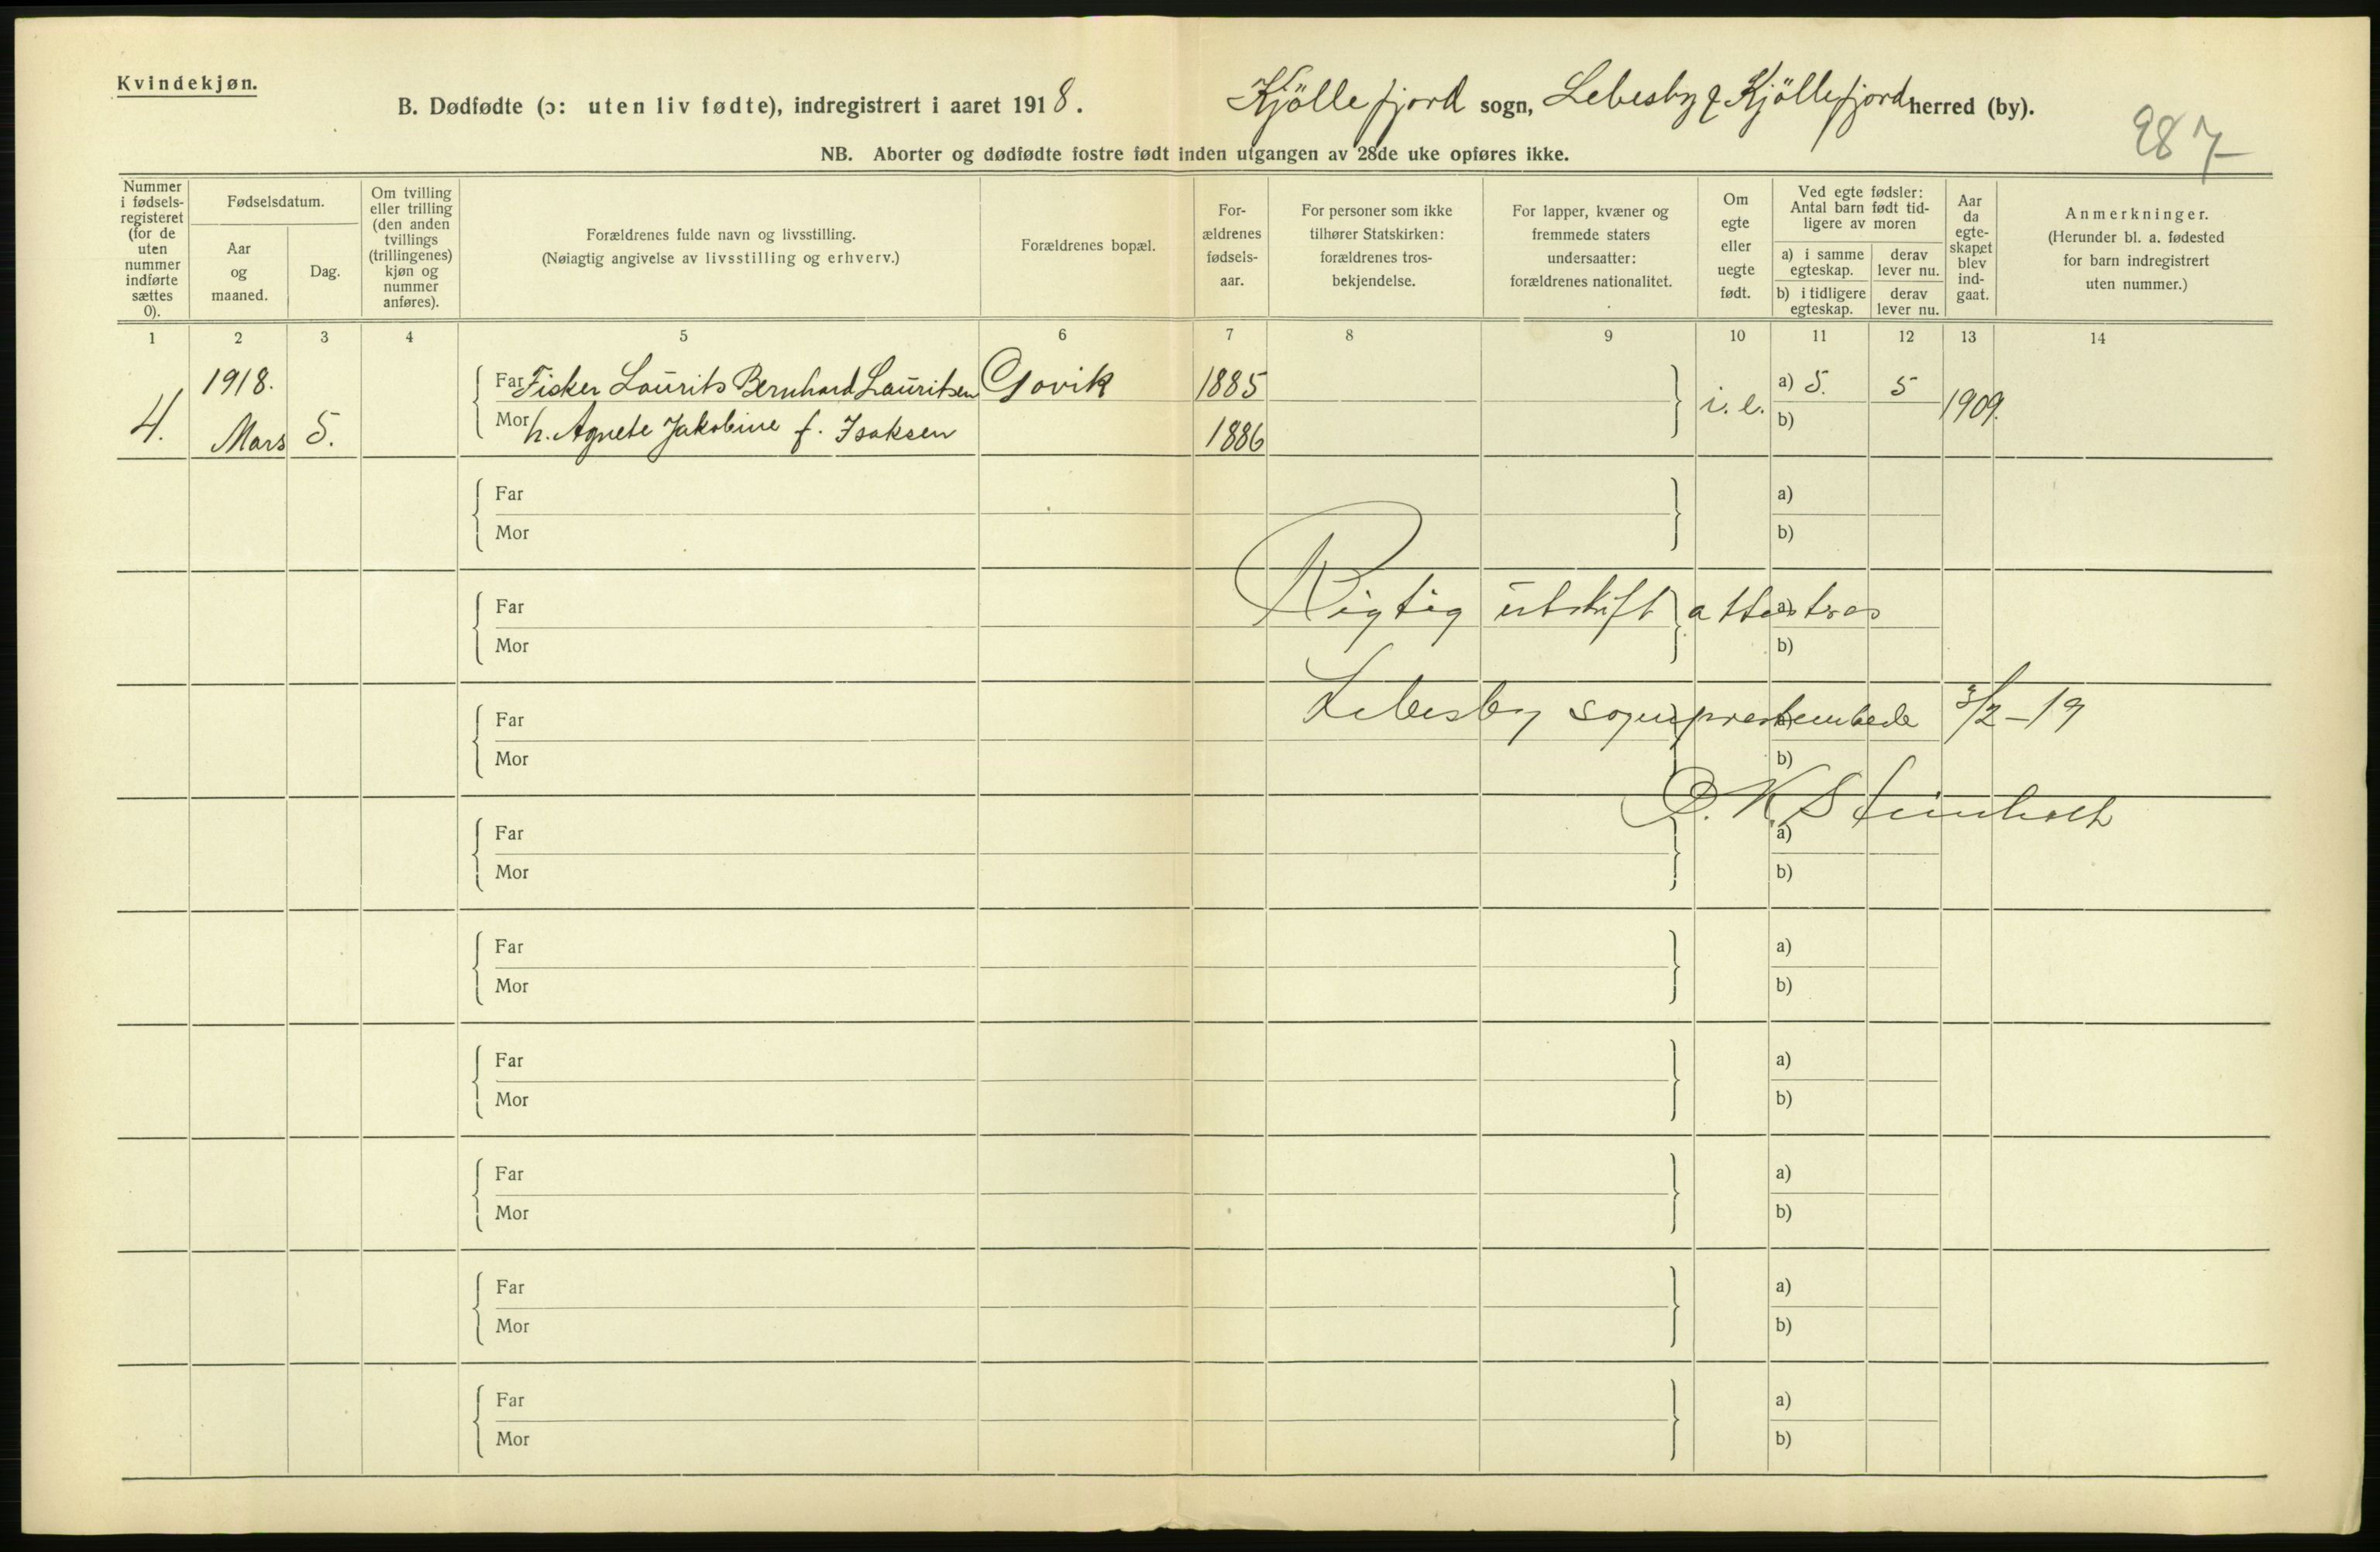 Kvindekjøn.
B. Dødfødte (ɔ: uten liv fødte), indregistrert i aaret 1918.
Kjöllefjord sogn, Lebesby & Kjöllefjord herred (by).
287
NB. Aborter og dødfødte fostre født inden utgangen av 28de uke opføres ikke.
Nummer i fødsels-registeret (for de uten nummer indførte sættes 0).
Fødselsdatum.
Aar og maaned.
Dag.
Om tvilling eller trilling (den anden tvillings (trillingenes) kjøn og nummer anføres).
Forældrenes fulde navn og livsstilling.
(Nøiagtig angivelse av livsstilling og erhverv.)
Forældrenes bopæl.
For-ældrenes fødsels-aar.
For personer som ikke tilhører Statskirken: forældrenes tros-bekjendelse.
For lapper, kvæner og fremmede staters undersaatter: forældrenes nationalitet.
Om egte eller uegte født.
Ved egte fødsler: Antal barn født tid-ligere av moren
a) i samme egteskap.
derav lever nu.
b) i tidligere egteskap.
derav lever nu.
Aar da egte-skapet blev ind-gaat.
Anmerkninger.
(Herunder bl. a. fødested for barn indregistrert uten nummer.)
1 2 3 4 5 6 7 8 9 10 11 12 13 14
4. 1918. Mars 5.
Far Fisker Laurits Bernhard Lauritsen Govik 1885 i. e. a) 5. 5 1909.
Mor h. Agnete Jakobine f. Isaksen 1886 b)
Far a)
Mor b)
Far a)
Rigtig utskrift attestres
Mor b)
Far
Lebesby sogneprestembede 3/2-19
Mor b)
O. K. Steinholt
Far a)
Mor b)
Far a)
Mor b)
Far a)
Mor b)
Far a)
Mor b)
Far a)
Mor b)
Far a)
Mor b)